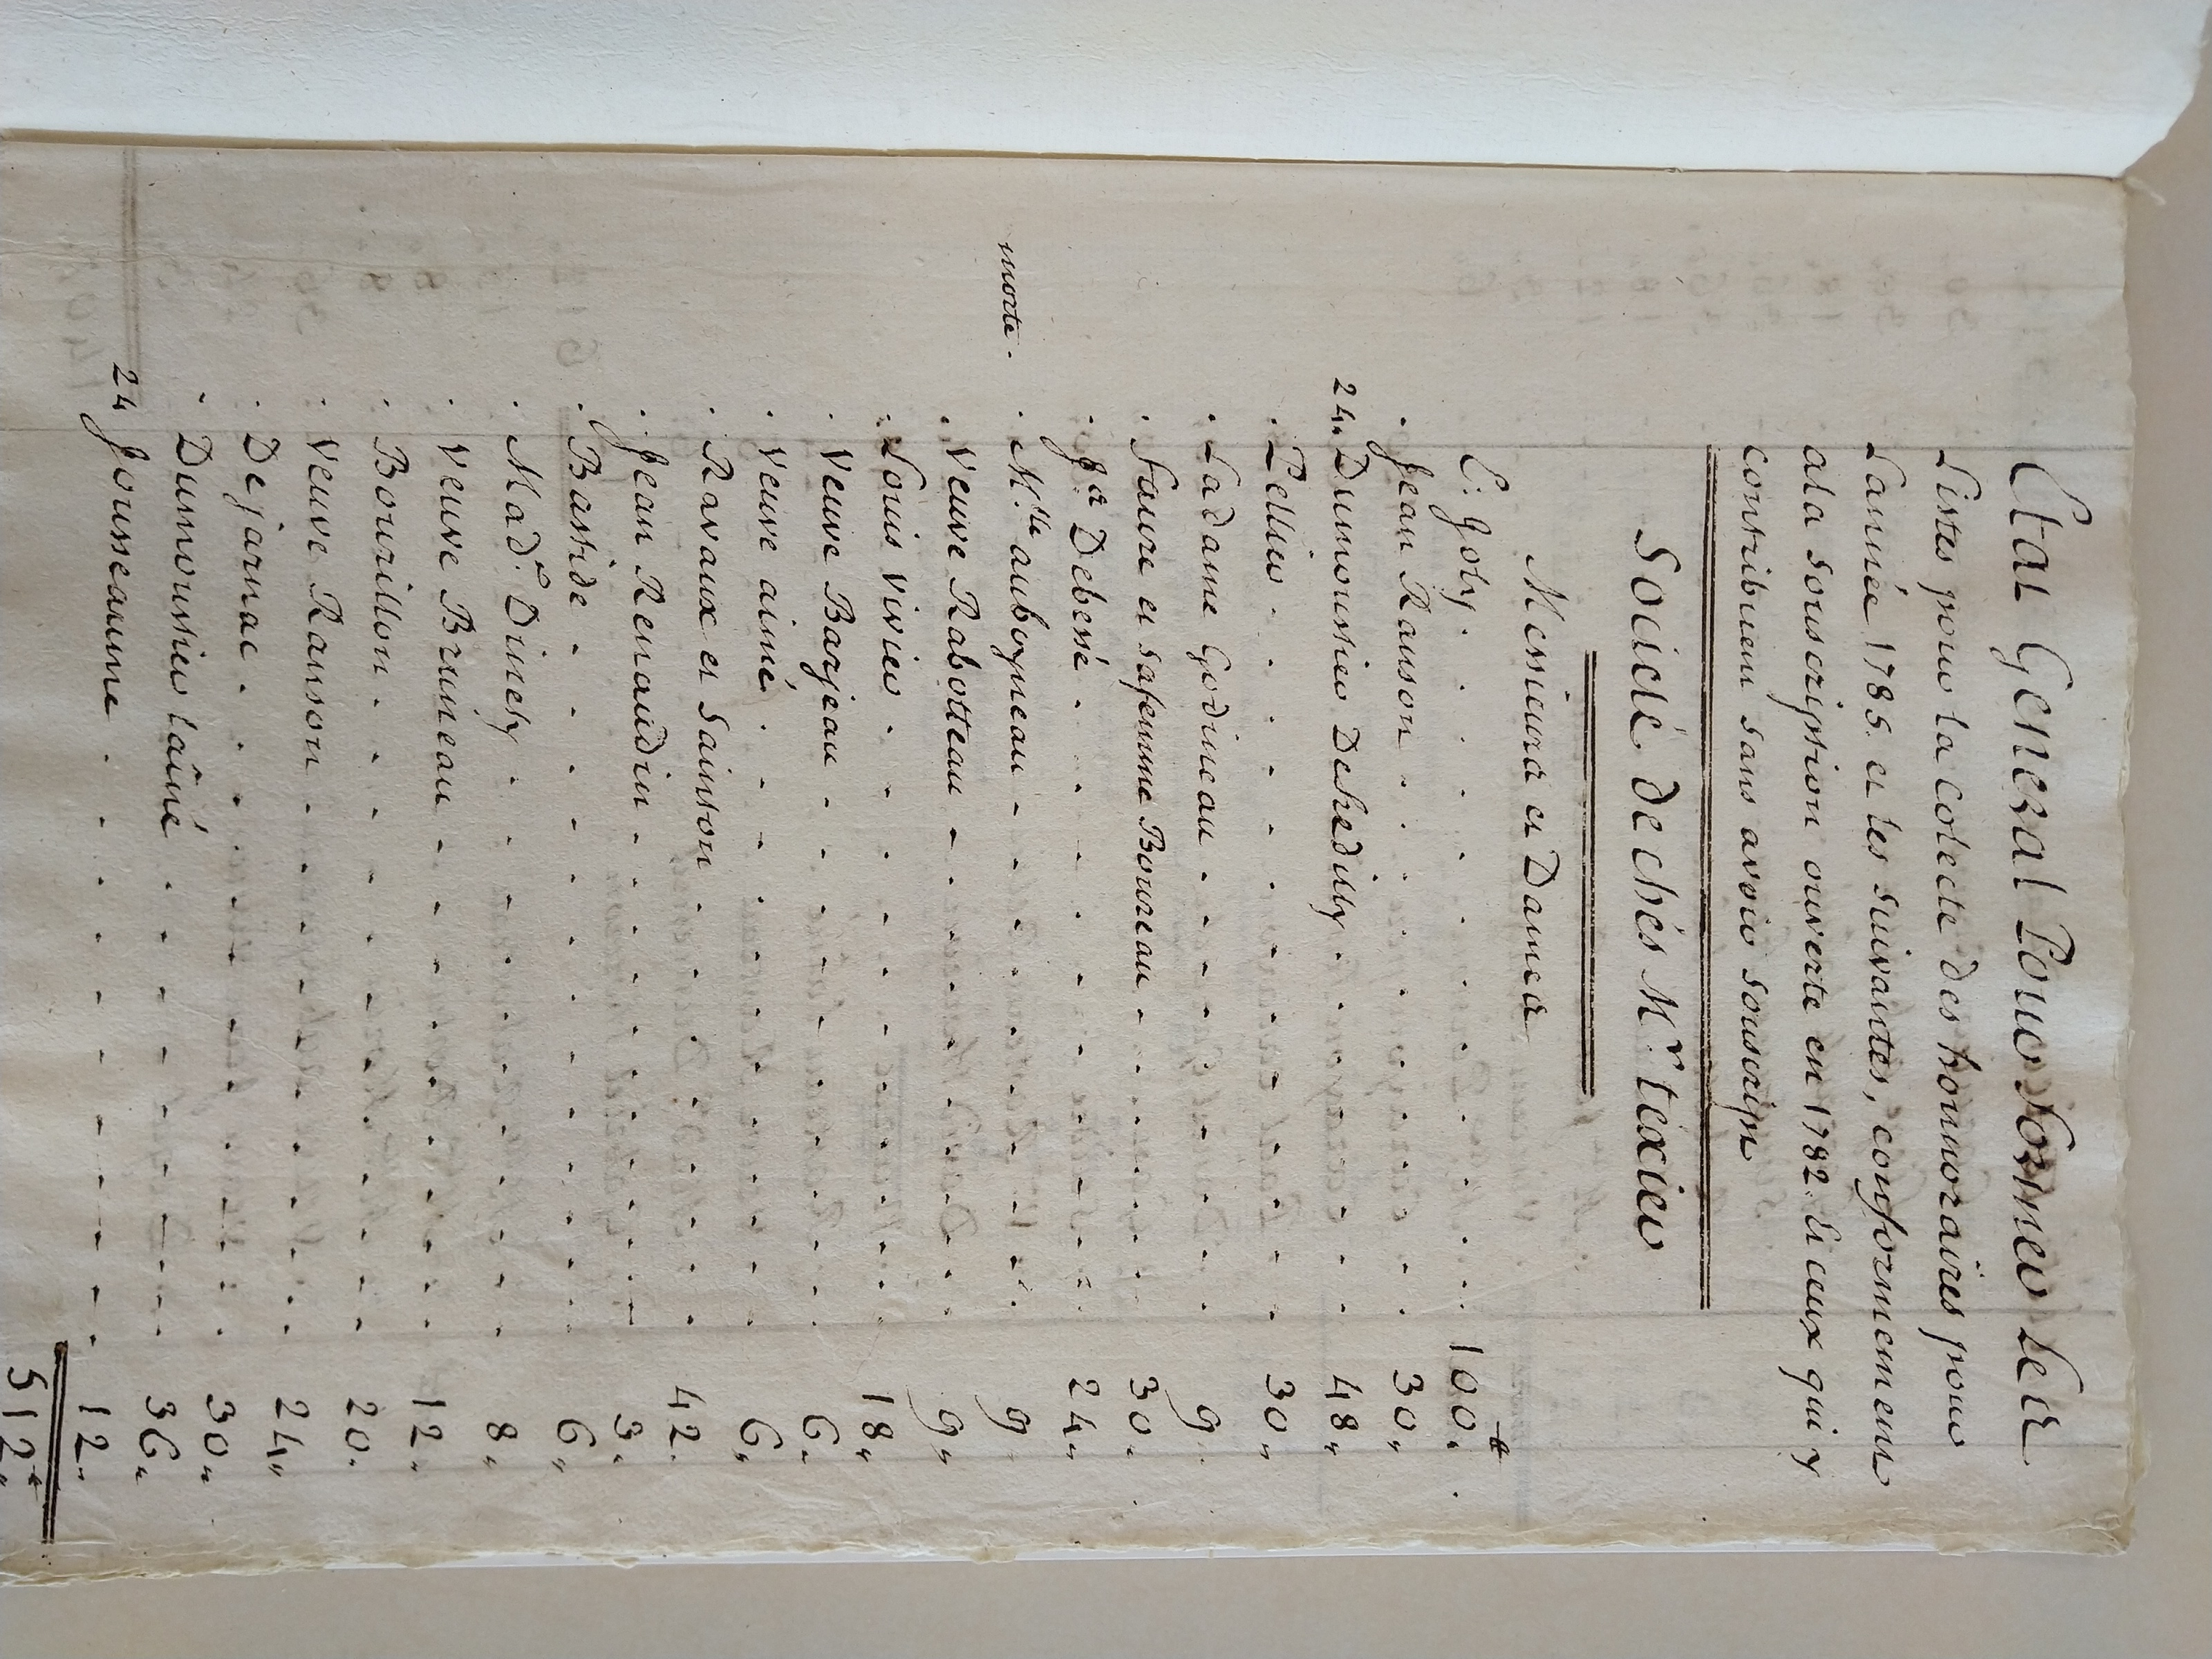 Etat General Pour Former Les
Listes pour la Colecte des honnoraires pour
Lannée 1785. et les suivantes, conformement
ala souscription ouverte en 1782. Et ceux qui y
contribuent sans avoir souscript
Société de chés Mr. texier
Messieurs et Dames
E: Joly . . . 100.#
. Jean Ranson . . . 30,,
24. Dumoustier Dehedilly . . . 48,,
. Pellier . . . 30,,
. Ladame Godineau . . . 9.
. Faure et safemme Boureau . . . 30.
. Jn Debessé . . . 24,,
morte . . Mlle auboyneau . . . 9
. Veuve Rabotteau . . . 9,,
. Louis Vivier . . . 18,,
. Veuve Barjeau . . . 6.
. Veuve aimé . . . 6,,
. Ravaux et Sainton . . . 42.
. Jean Renaudin . . . 3.
. Bastide . . . 6,,
. Made. Dinety . . . 8,,
. Veuve Bruneau . . . 12.,
. Bourillon . . . 20.
. Veuve Ranson . . . 24,,
. Dejarnac . . . 30,,
. Dumoustier lainé . . . 36,,
24 Jousseaume . . . 12..
512,,#